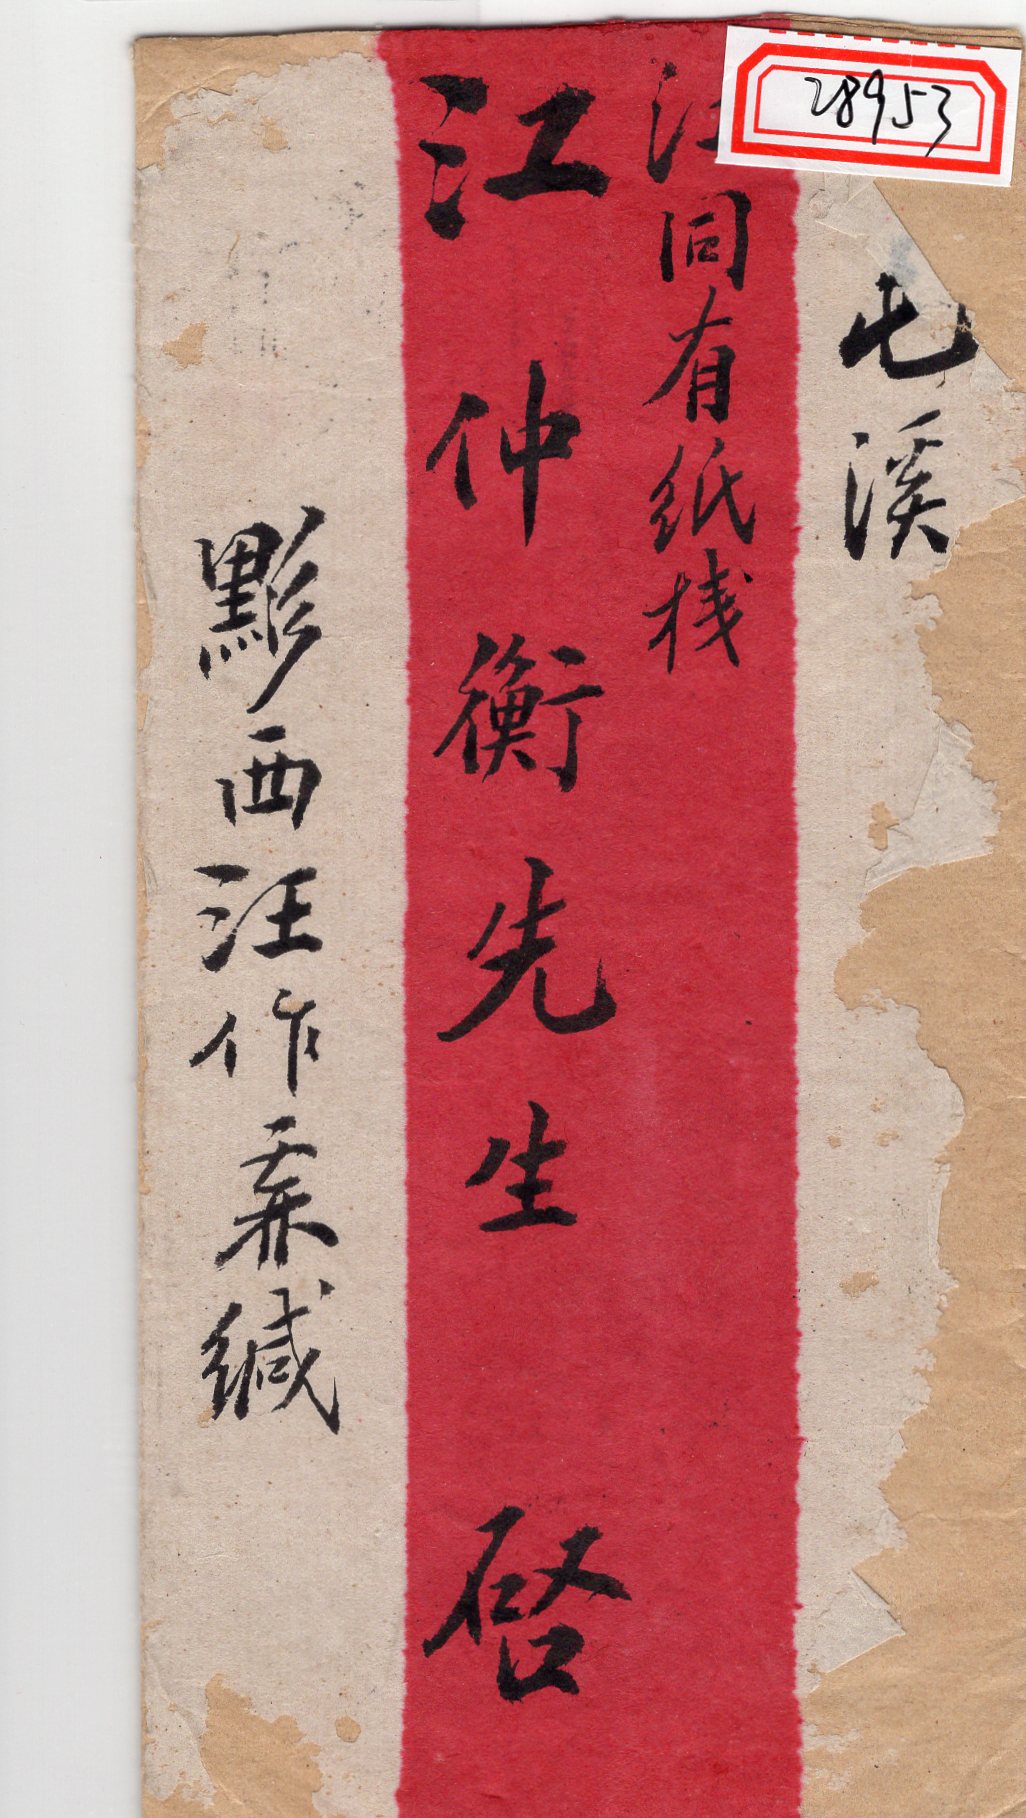 28953
屯溪
同有紙栈
江仲衡先生啓
黟西汪作霖緘